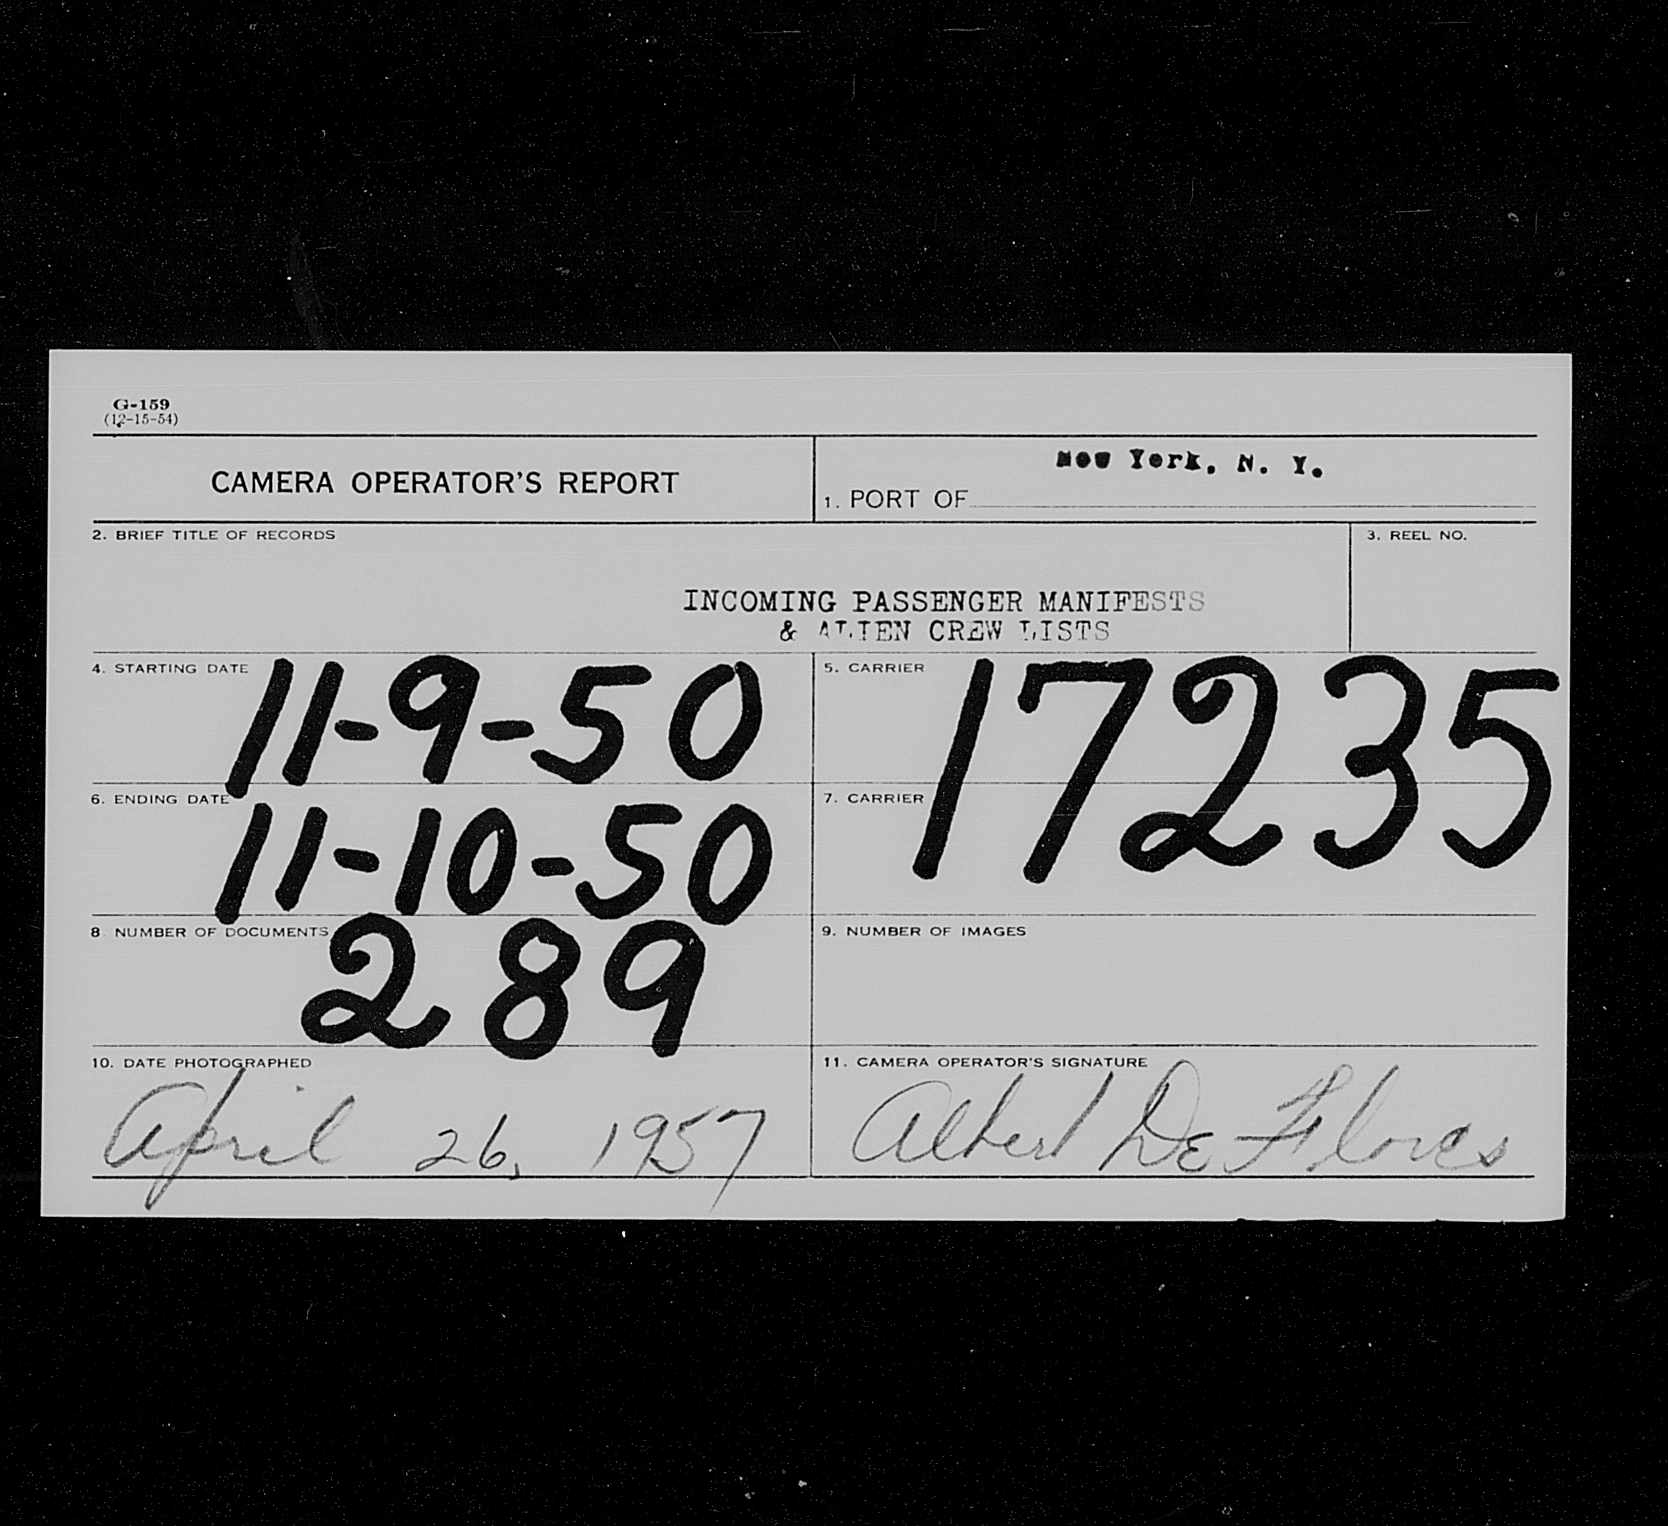 G-159
(12-15-54)
CAMERA OPERATOR'S REPORT
New York, N. Y.
1. PORT OF
2. BRIEF TITLE OF RECORDS
3. REEL NO.
INCOMING PASSENGER MANIFESTS
& ALIEN CREW LISTS
4. STARTING DATE 11-9-50
5. CARRIER
17235
6. ENDING DATE 11-10-50
7. CARRIER
8 NUMBER OF DOCUMENTS 289
9. NUMBER OF IMAGES
10. DATE PHOTOGRAPHED
April 26, 1957
11. CAMERA OPERATOR'S SIGNATURE
Albert De Flores